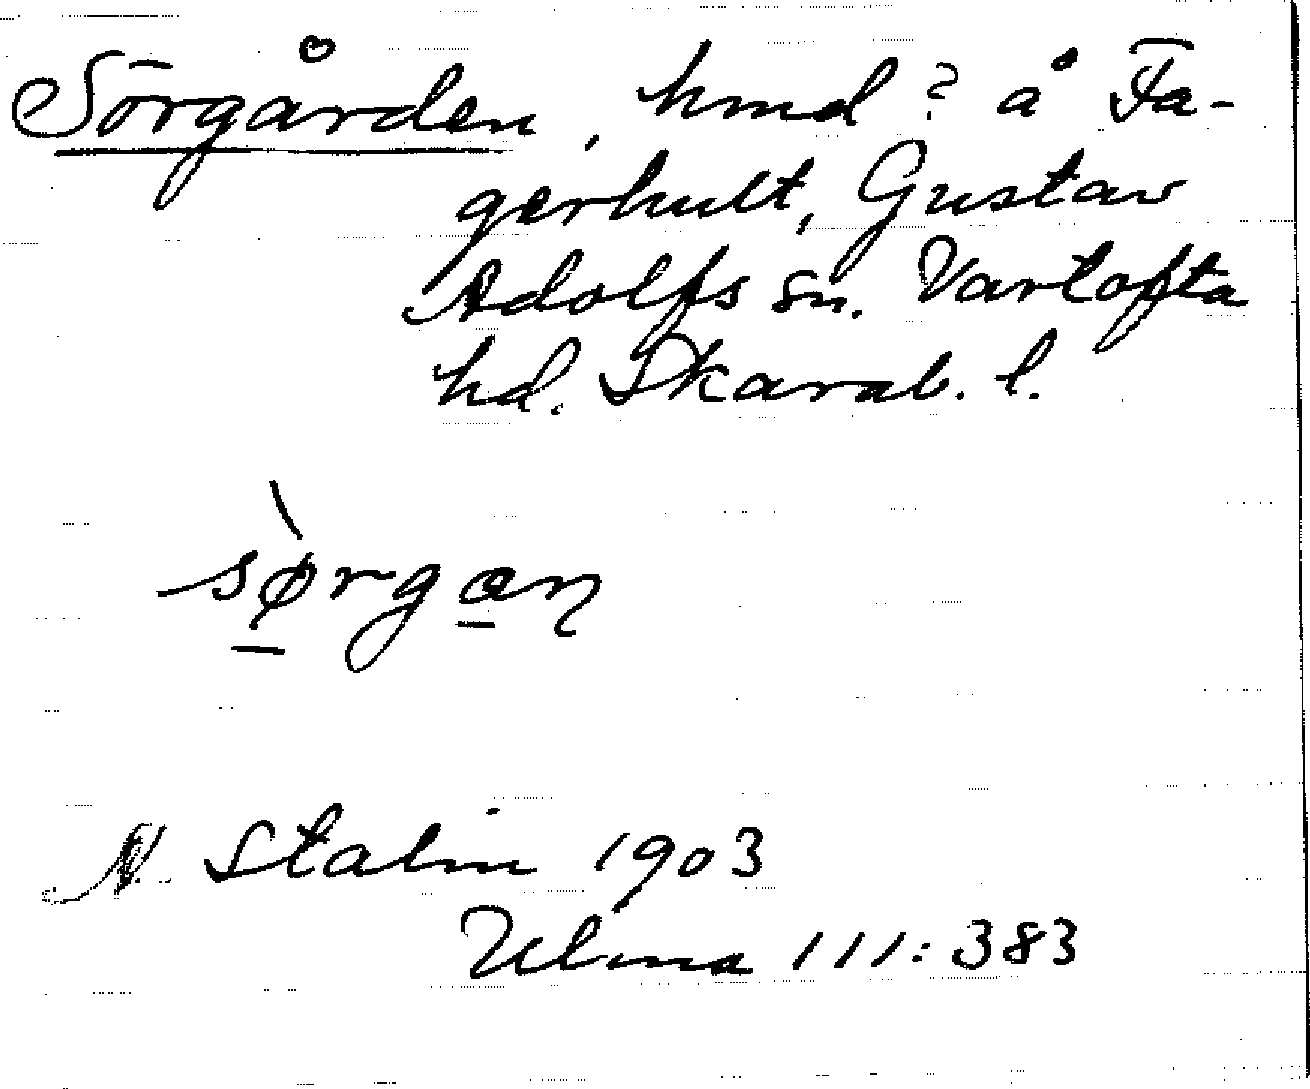 Sörgården, hmd? å Fa-
gerhult, Gustav
Adolfs sn. Vartofta
hd. Skarab. l.
sø̀rgan
N. Stalin 1903
Ulma 111:383